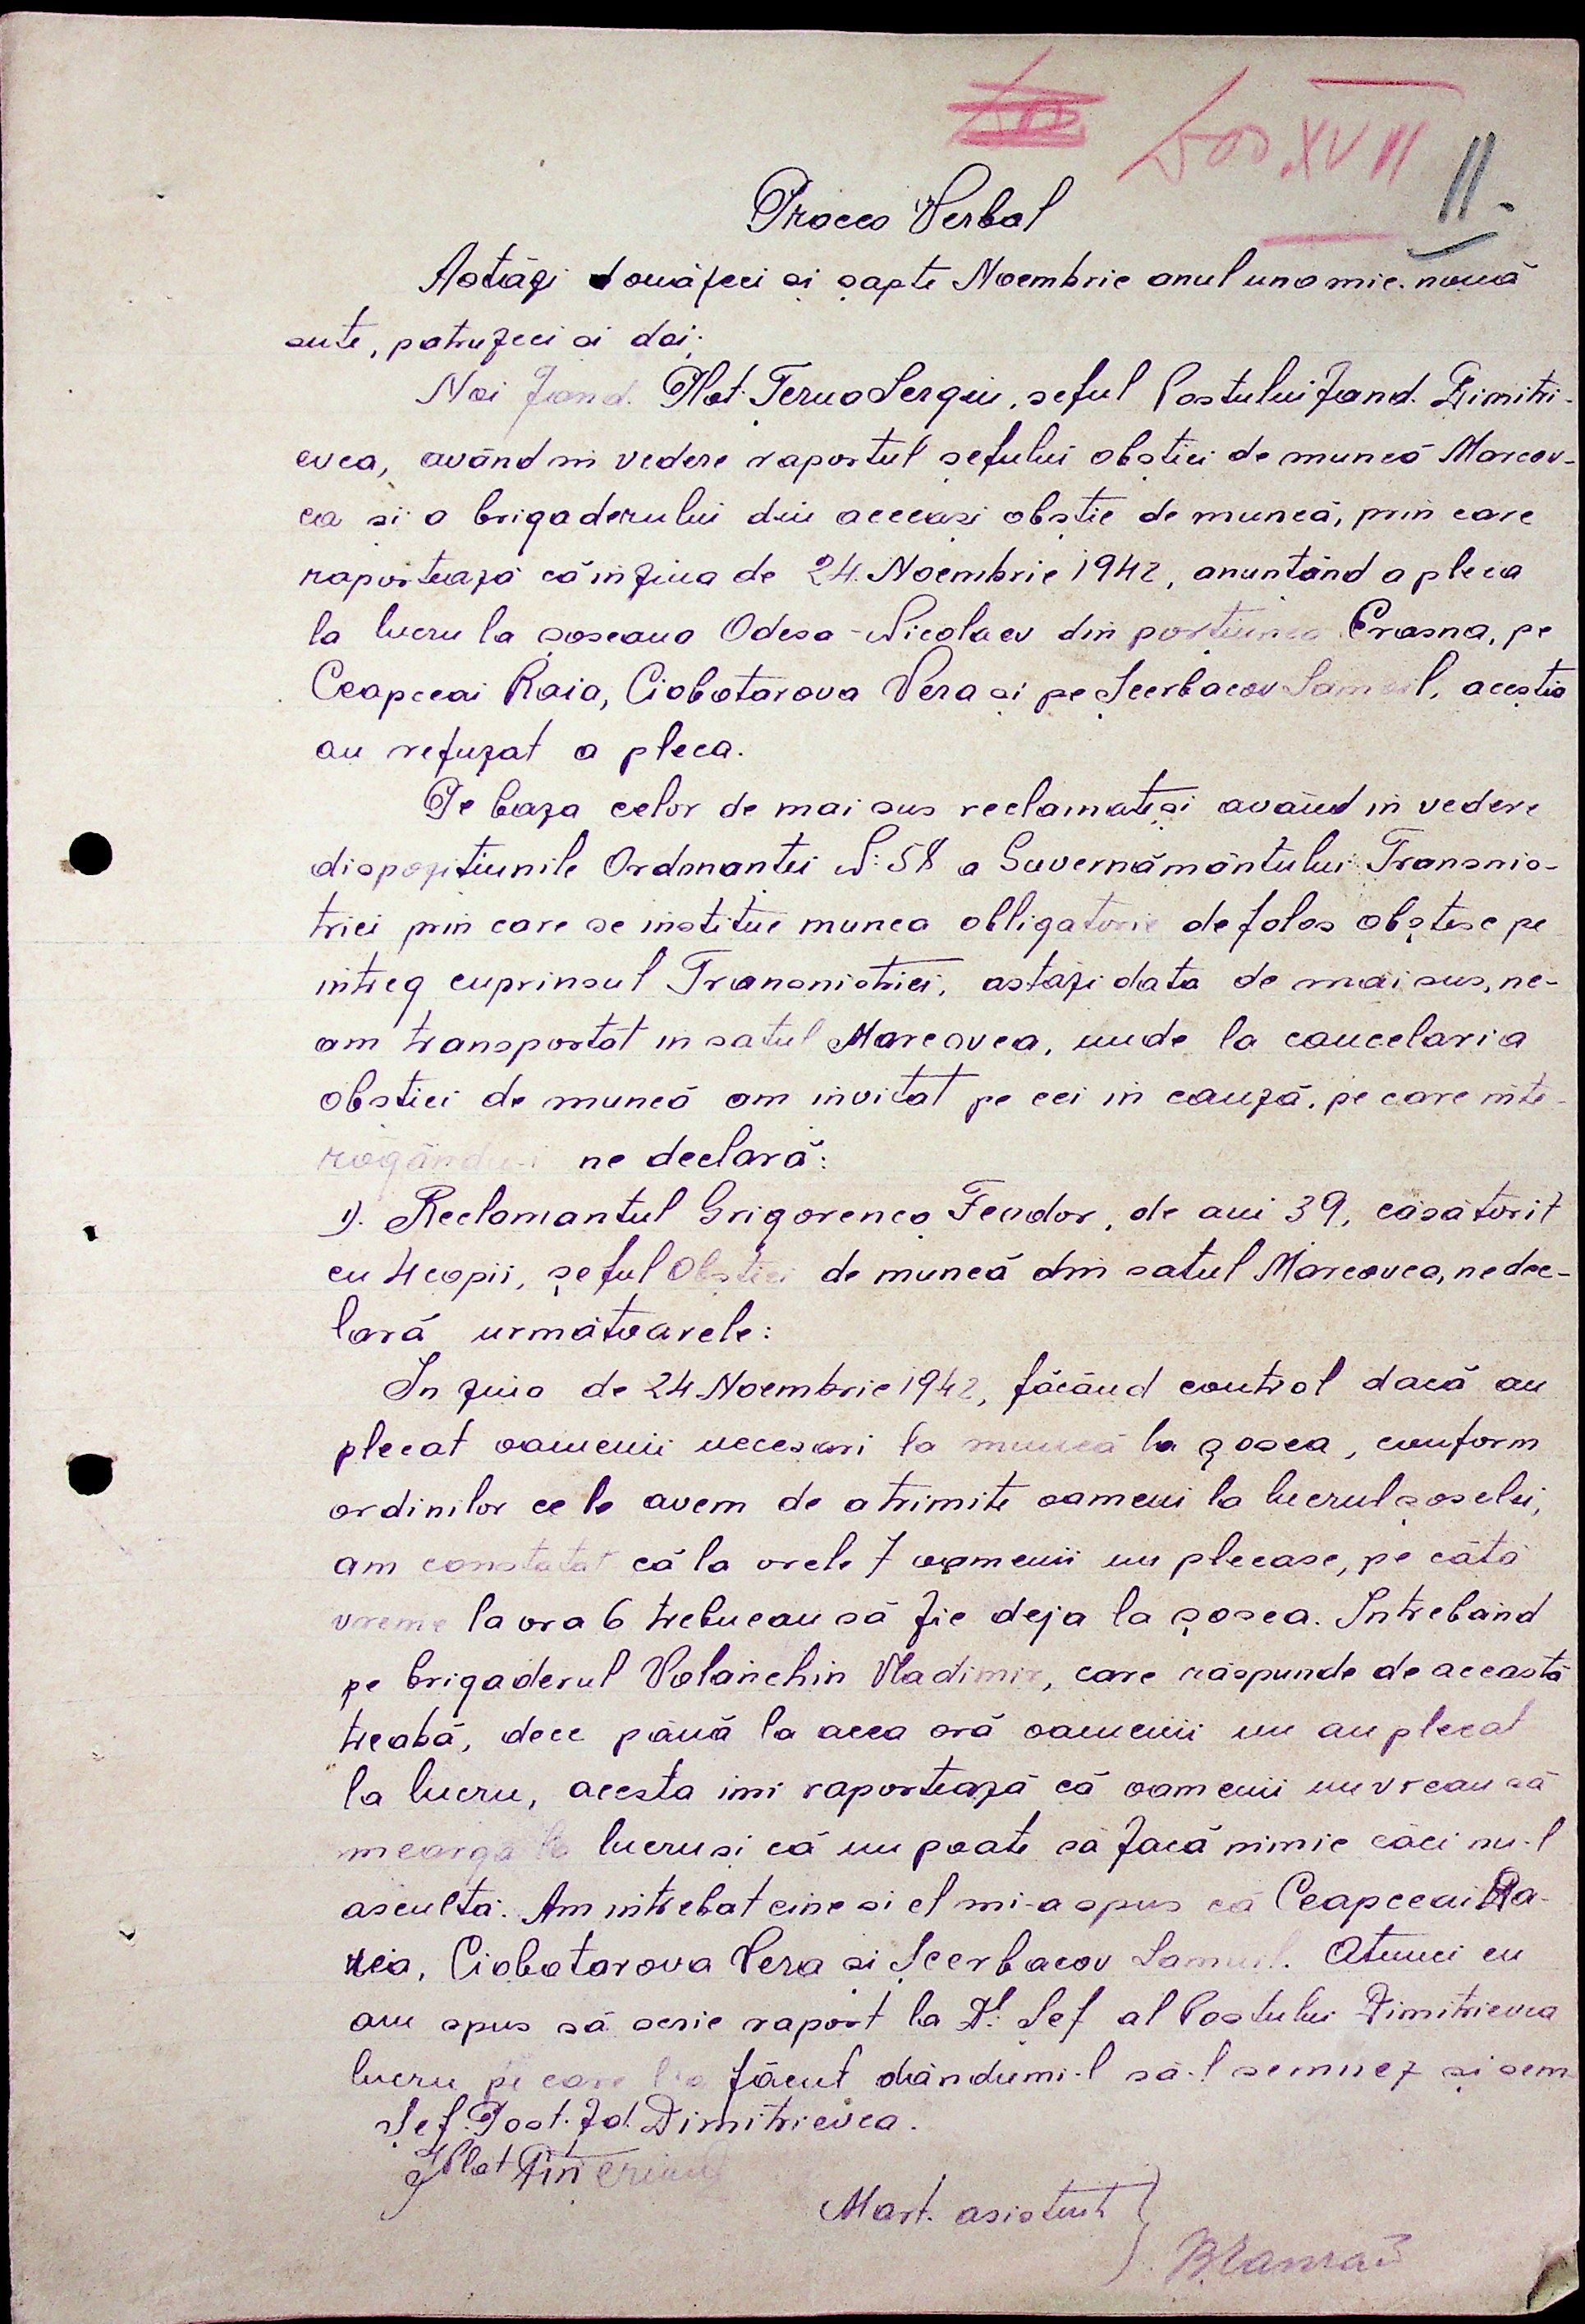 XVII
II.
Proces Verbal
Astăzi douăzeci si șapte Noembrie anul una mie nouă
sute, patruzeci si doi;
Noi Jand. Plot. Sergiu, seful Postului Jand. Dimitri-
evca, având in vedere raportul șefului obștiei de muncă Marcov-
ca si a brigaderului din aceeași obștie de muncă, prin care
raportează că in ziua de 24. Noembrie 1942, anuntând a pleca
la lucru la șoseaua Odesa-Nicolaev din porțiunea Crasna, pe
Ceapceai Raia, Ciobotarova Vera si pe Șcerbacov Samuil, aceștia
au refuzat a pleca.
Pe baza celor de mai sus reclamate și având in vedere
dispozitiunile Ordonantei N: 58 a Guvernământului Transnis-
triei prin care se institue munca obligatorie de folos obștesc pe
intreg cuprinsul Transnistriei, astazi data de mai sus, ne-
am transportat in satul Marcovca, unde la cancelaria
obstiei de muncă am invitat pe cei in cauză, pe care inte-
rogându-i ne declară:
1). Reclamantul Grigorenco Feodor, de ani 39, căsătorit
cu 4 copii, șeful Obștiei de muncă din satul Marcovca, ne dec-
lară următoarele:
In ziua de 24 Noembrie 1942, făcând control dacă au
plecat oamenii necesari la muncă la șosea, conform
ordinilor ce le avem de a trimite oameni la lucrul șoselei,
am constatat că la orele 7 oamenii nu plecase, pe câtă
vreme la ora 6 trebueau să fie deja la șosea. Intrebând
pe brigaderul Volanchin Vladimir, care răspunde de această
treabă, dece până la acea oră oamenii nu au plecat
la lucru, acesta imi raportează că oamenii nu vreau să
mearga la lucru si că nu poate să facă nimic căci nu-l
ascultă. Am intrebat cine si el mi-a spus că Ceapceai Ra-
Ciobotarova Vera si Șcerbacov Samuil. Atunci eu
am spus să scrie raport la Dl. Șef al Postului Dimitrievca
lucru pe care l-a făcut dăndumi-l să-l semnez și sem-
Șef. Post. Jd. Dimitrievca.
Plot
Mart. asistent }